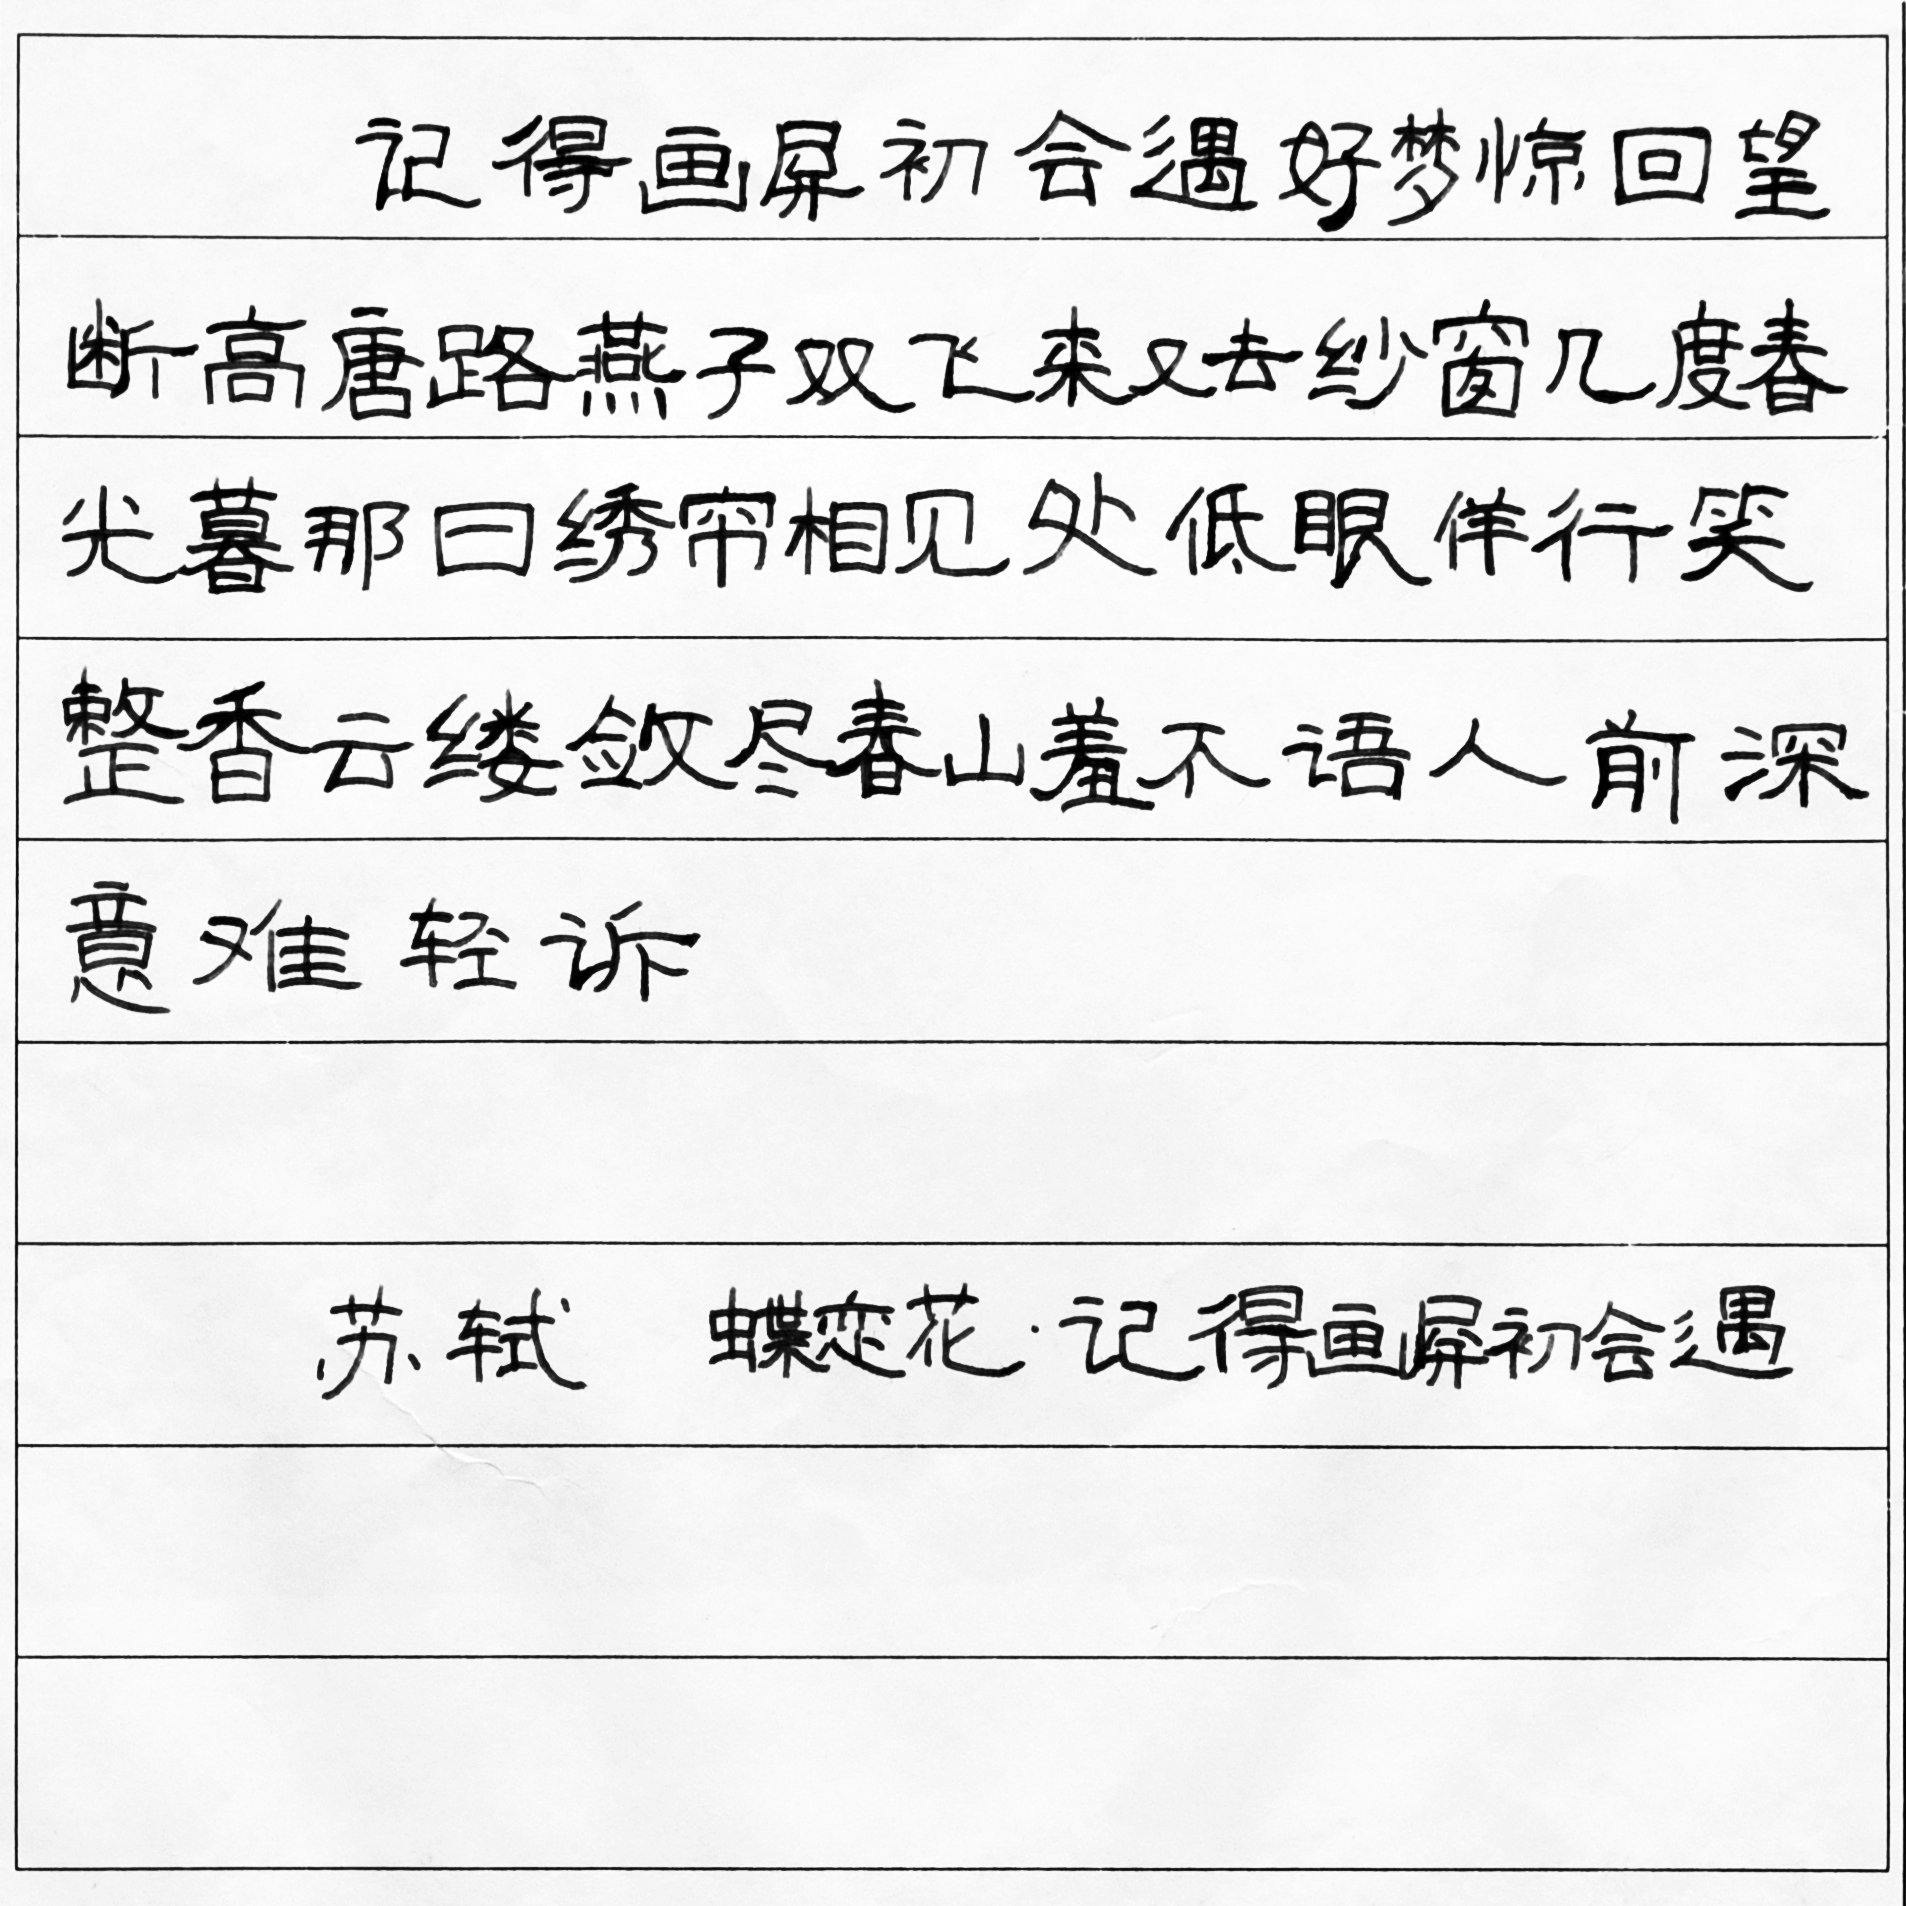 记得画屏初会遇好梦惊回望
断高唐路燕子双飞来又去纱窗几度春
光暮那日绣帘相见处低眼佯行笑
整香云缕敛尽春山羞不语人前深
意难轻诉
苏轼 蝶恋花·记得画屏初会遇